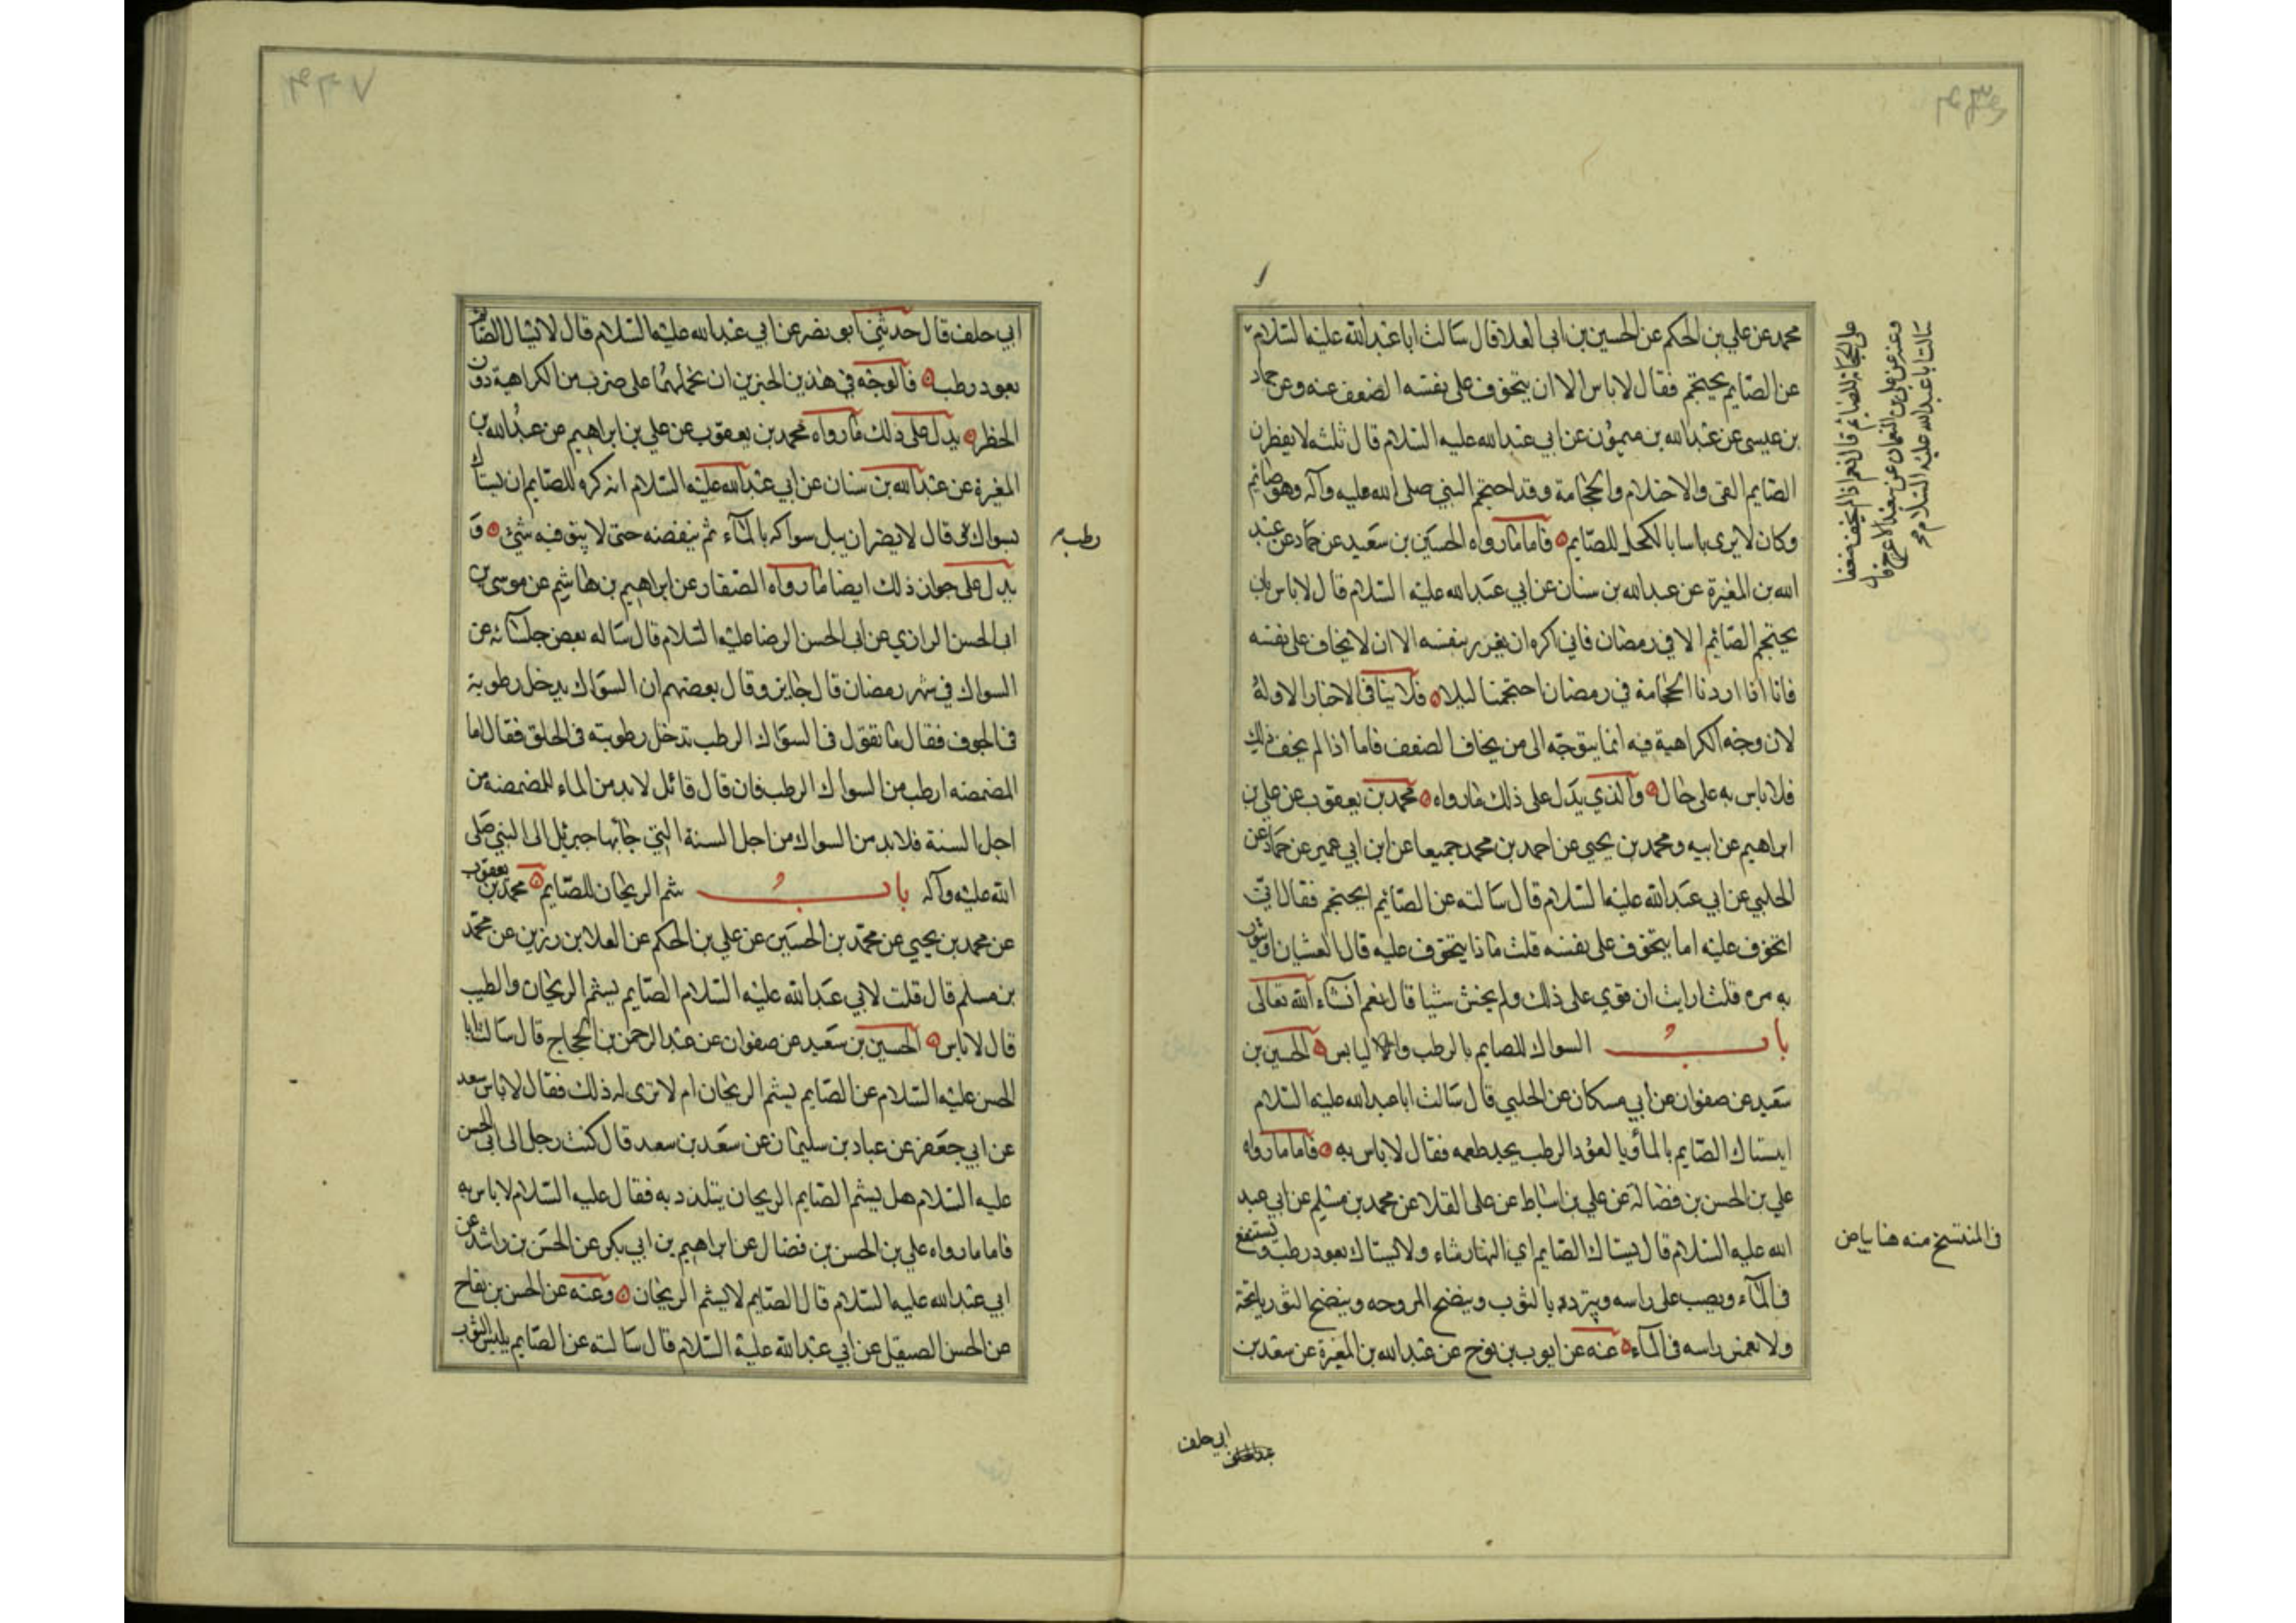 محمد عن علي بن الحكم عن الحسين بن ابي العلا قال سالت ابا عبد الله عليه السلام
عن الصايم يحتجم فقال لا باس الا ان يتخوف على نفسه الضعف عنه وعن حماد
بن عيسى عن عبد الله بن ميمون عن ابي عبد الله عليه السلام قال ثلثه لا يفطرن
الصايم القى والاحتلام والحجامة وقد احتجم النبي صلى الله عليه وآله وهو صائم
وكان لا يرى باسا بالكحل للصايم فاما ما رواه الحسين بن سعيد عن حماد عن عبد
الله بن المغيرة عن عبد الله بن سنان عن ابي عبد الله عليه السلام قال لا باس بان
يحتجم الصائم الا في رمضان فاني اكره ان يغرر بنفسه الا ان لا يخاف على نفسه
فانا اذا اردنا الحجامة في رمضان احتجمنا ليلا فلا ينافى الاخبار الاوله
لان وجه الكراهية فيه انما يتوجه الى من يخاف الضعف فاما اذا لم يخف ذلك
فلا باس به على حال والذي يدل على ذلك ما رواه محمد بن يعقوب عن علي بن
ابراهيم عن ابيه ومحمد بن يحيى عن احمد بن محمد جميعا عن ابن ابي عمير عن حماد عن
الحلبي عن ابي عبد الله عليه السلام قال سالته عن الصائم ايحتجم فقال انى
اتخوف عليه اما يتخوف على نفسه قلت ماذا يتخوف عليه قال الغشيان او تثور
به مره قلت ارايت ان قوي على ذلك ولم يخش شيا قال نعم انشاء الله تعالى
باب السواك للصايم بالرطب واليابس الحسين بن
سعيد عن صفوان عن ابي مسكان عن الحلبي قال سالت ابا عبد الله عليه السلام
ايستاك الصايم بالماء وبالعود الرطب يجد طعمه فقال لا باس به فاما ما رواه
علي بن الحسن بن فضالة عن علي بن اسباط عن على القلا عن محمد بن مسلم عن ابي عبد
الله عليه السلام قال يستاك الصايم اي النهار شاء ولا يستاك بعود رطب ويستنقع
في الماء ويصب على راسه ويتبرد بالثوب وينضح المروحه وينضح البوريا تحته
ولا يغمس راسه في الماء عنه عن ايوب بن نوح عن عبد الله بن المغيرة عن سعد بن
سالت ابا عبد الله عليه السلام
وعنه عن علي بن النعمان عن سعيد الاعرج قال
على الحجامة للصائم قال نعم اذا لم يخف ضعفا
في المنتسخ منه هنا بياض
ابي خلف
ابي خلف قال حدثني ابو بصر عن ابي عبد الله عليه السلام قال لا يستاك الصائم
بعود رطب فالوجه في هذين الخبرين ان نحملهما على ضرب من الكراهية دون
الحظر يدل على ذلك ما رواه محمد بن يعقوب عن علي بن ابراهيم عن عبد الله بن
المغيرة عن عبد الله بن سنان عن ابي عبد الله عليه السلام انه كره للصايم ان يستاك
بسواك قال لا يضر ان يبل سواكه بالماء ثم ينفضه حتى لا يبقى فيه شئ و
رطب
يدل على جواز ذلك ايضا ما رواه الصفار عن ابراهيم بن هاشم عن موسى بن
ابى الحسن الرازي عن ابى الحسن الرضا عليه السلام قال ساله بعض جلسائه عن
السواك في شهر رمضان قال جايز وقال بعضهم ان السواك يدخل رطوبة
في الجوف فقال ما تقول في السواك الرطب تدخل رطوبته في الحلق فقال اما
المضمضه ارطب من السواك الرطب فان قال قائل لابد من الماء للمضمضه من
اجل السنة فلابد من السواك من اجل السنة التي جاء بها جبرئيل الى النبي صلى
الله عليه وآله باب شم الريحان للصايم محمد بن يعقوب
عن محمد بن يحيى عن محمد بن الحسين عن علي بن الحكم عن العلا بن رزين عن محمد
بن مسلم قال قلت لابي عبد الله عليه السلام الصايم يشم الريحان والطيب
قال لا باس الحسين بن سعيد عن صفوان عن عبد الرحمن بن الحجاج قال سالت ابا
الحسن عليه السلام عن الصايم يشم الريحان ام لا ترى له ذلك فقال لا باس سعد
عن ابي جعفر عن عباد بن سليمان عن سعد بن سعد قال كتب رجل الى ابى الحسن
عليه السلام هل يشم الصايم الريحان يتلذذ به فقال عليه السلام لا باس به
فاما ما رواه علي بن الحسن بن فضال عن ابراهيم بن ابي بكر عن الحسن بن راشد عن
ابي عبد الله عليه السلام قال الصايم لا يشم الريحان وعنه عن الحسن بن بقاح
عن الحسن الصيقل عن ابي عبد الله عليه السلام قال سالته عن الصايم يلبس الثوب